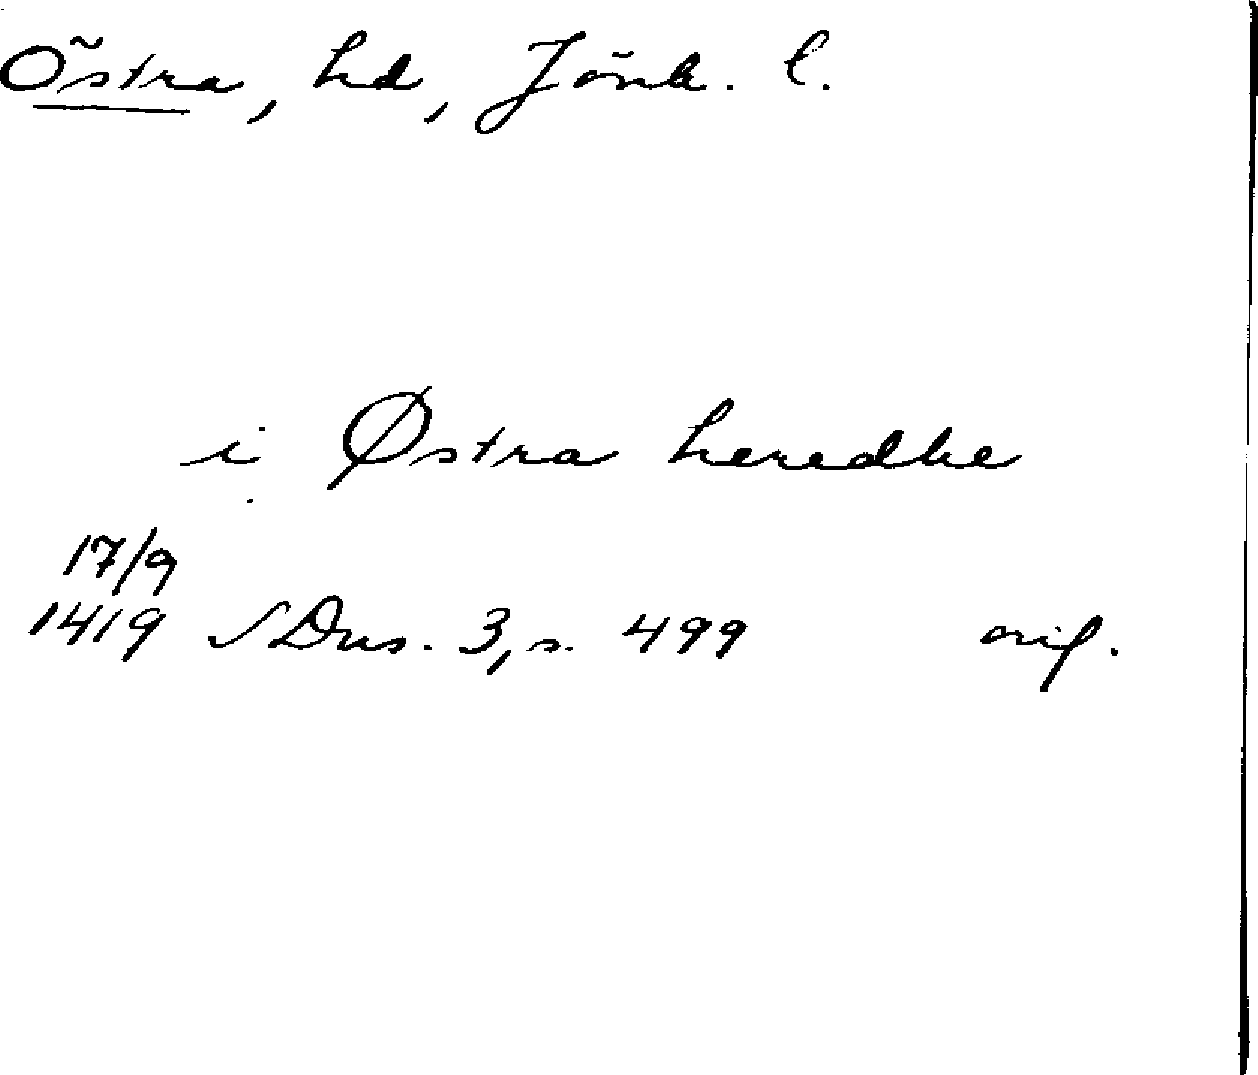 Östra, hd, Jönk. l.
i Østra heredhe
17/9
1419 SDns. 3, s. 499 orig.